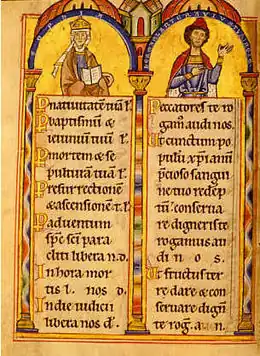 P nativitatē tuā l'.
P baptismū &
ieiuniū tuū l'.
P mortem & se
pulturā tuā l'.
P resurrectionē
& ascensionē t. l'.
P adventum
sp̄c sc̄i para
cliti libera n. d.
In hora mor
tis l'. nos d.
In die iudicii
libera nos d'.
Peccatores te ro
gam' audi nos.
Ut cunctum po
pulū xp̄ianū
p̄cioso sangui
ne tuo redēp
tū conserva
re digneris te
rogamus au
di n o s.
Ut fructus ter
re dare & con
servare dign̄
te rog. a. n.